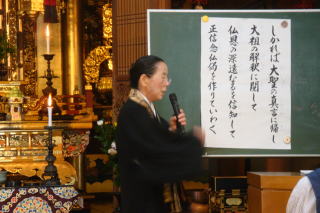 しかれば大聖の真言に帰し
大祖の解釈に閲して
仏恩の深遠なるを信知して
正信念仏偈を作りていわく